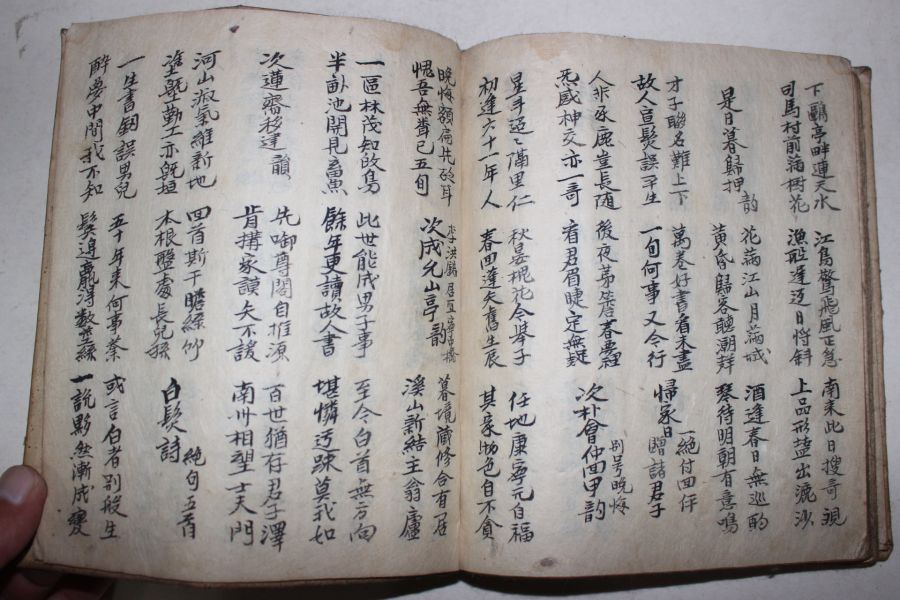 下鷗亭畔連天水
江鳥驚飛風正急
南來此日搜奇視
司馬村前滿樹花
漁船遲迟日將斜
上品形鹽出漉沙
是日暮歸押韵
花滿江山月滿城
酒逢春日無巡酌
黃昏歸客聽潮聲
琴待明朝有意鳴
才子聯名難上下
萬卷好書看未盡
歸家日
一絶付四仟
贈諸君子
故人宣髮誤平生
一旬何事又今行
人非豕鹿豈長隨
後夜茅簷春夢裡
次朴會仲回甲韵
别号晚悔
炁感神交亦一奇
看君眉睫定無疑
星斗迢迢滿里仁
秋晏槐花今舉子
任地康寧元自福
初逢六十一年人
春回逢矢舊生辰
其豪助色自不貧
晚悔額扁先砭耳
李洪鎭居宜寧古橋
暮境藏修合有居
愧吾無聲已五旬
次成允山亭韵
溪山新結主翁廬
一區林茂知啟鳥
此世能成男子事
至今白首無方向
半畝池開見畜魚
餘年更讀故人書
堪憐迂踈莫我如
次蓮齋移建韻
先啣尊閣自推源
百世猶存君子澤
肯搆家謨矢不諼
南州相望士夫門
河山淑氣維新地
四首斯干瞻綠竹
白髮詩 絶句五首
塗墍勤工亦旣垣
木根盤處長兒孫
一生書劒誤男兒
五十年來何事業
或言白者别般生
醉夢中間我不知
鬓邊贏得數莖絲
一說黟然漸成變